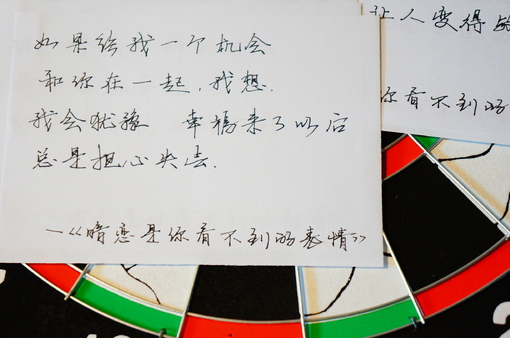 如果给我一个机会
和你在一起，我想．
我会犹豫 幸福来了以后
总是担心失去．
—《暗恋是你看不到的表情》
让人变得
你看不到的